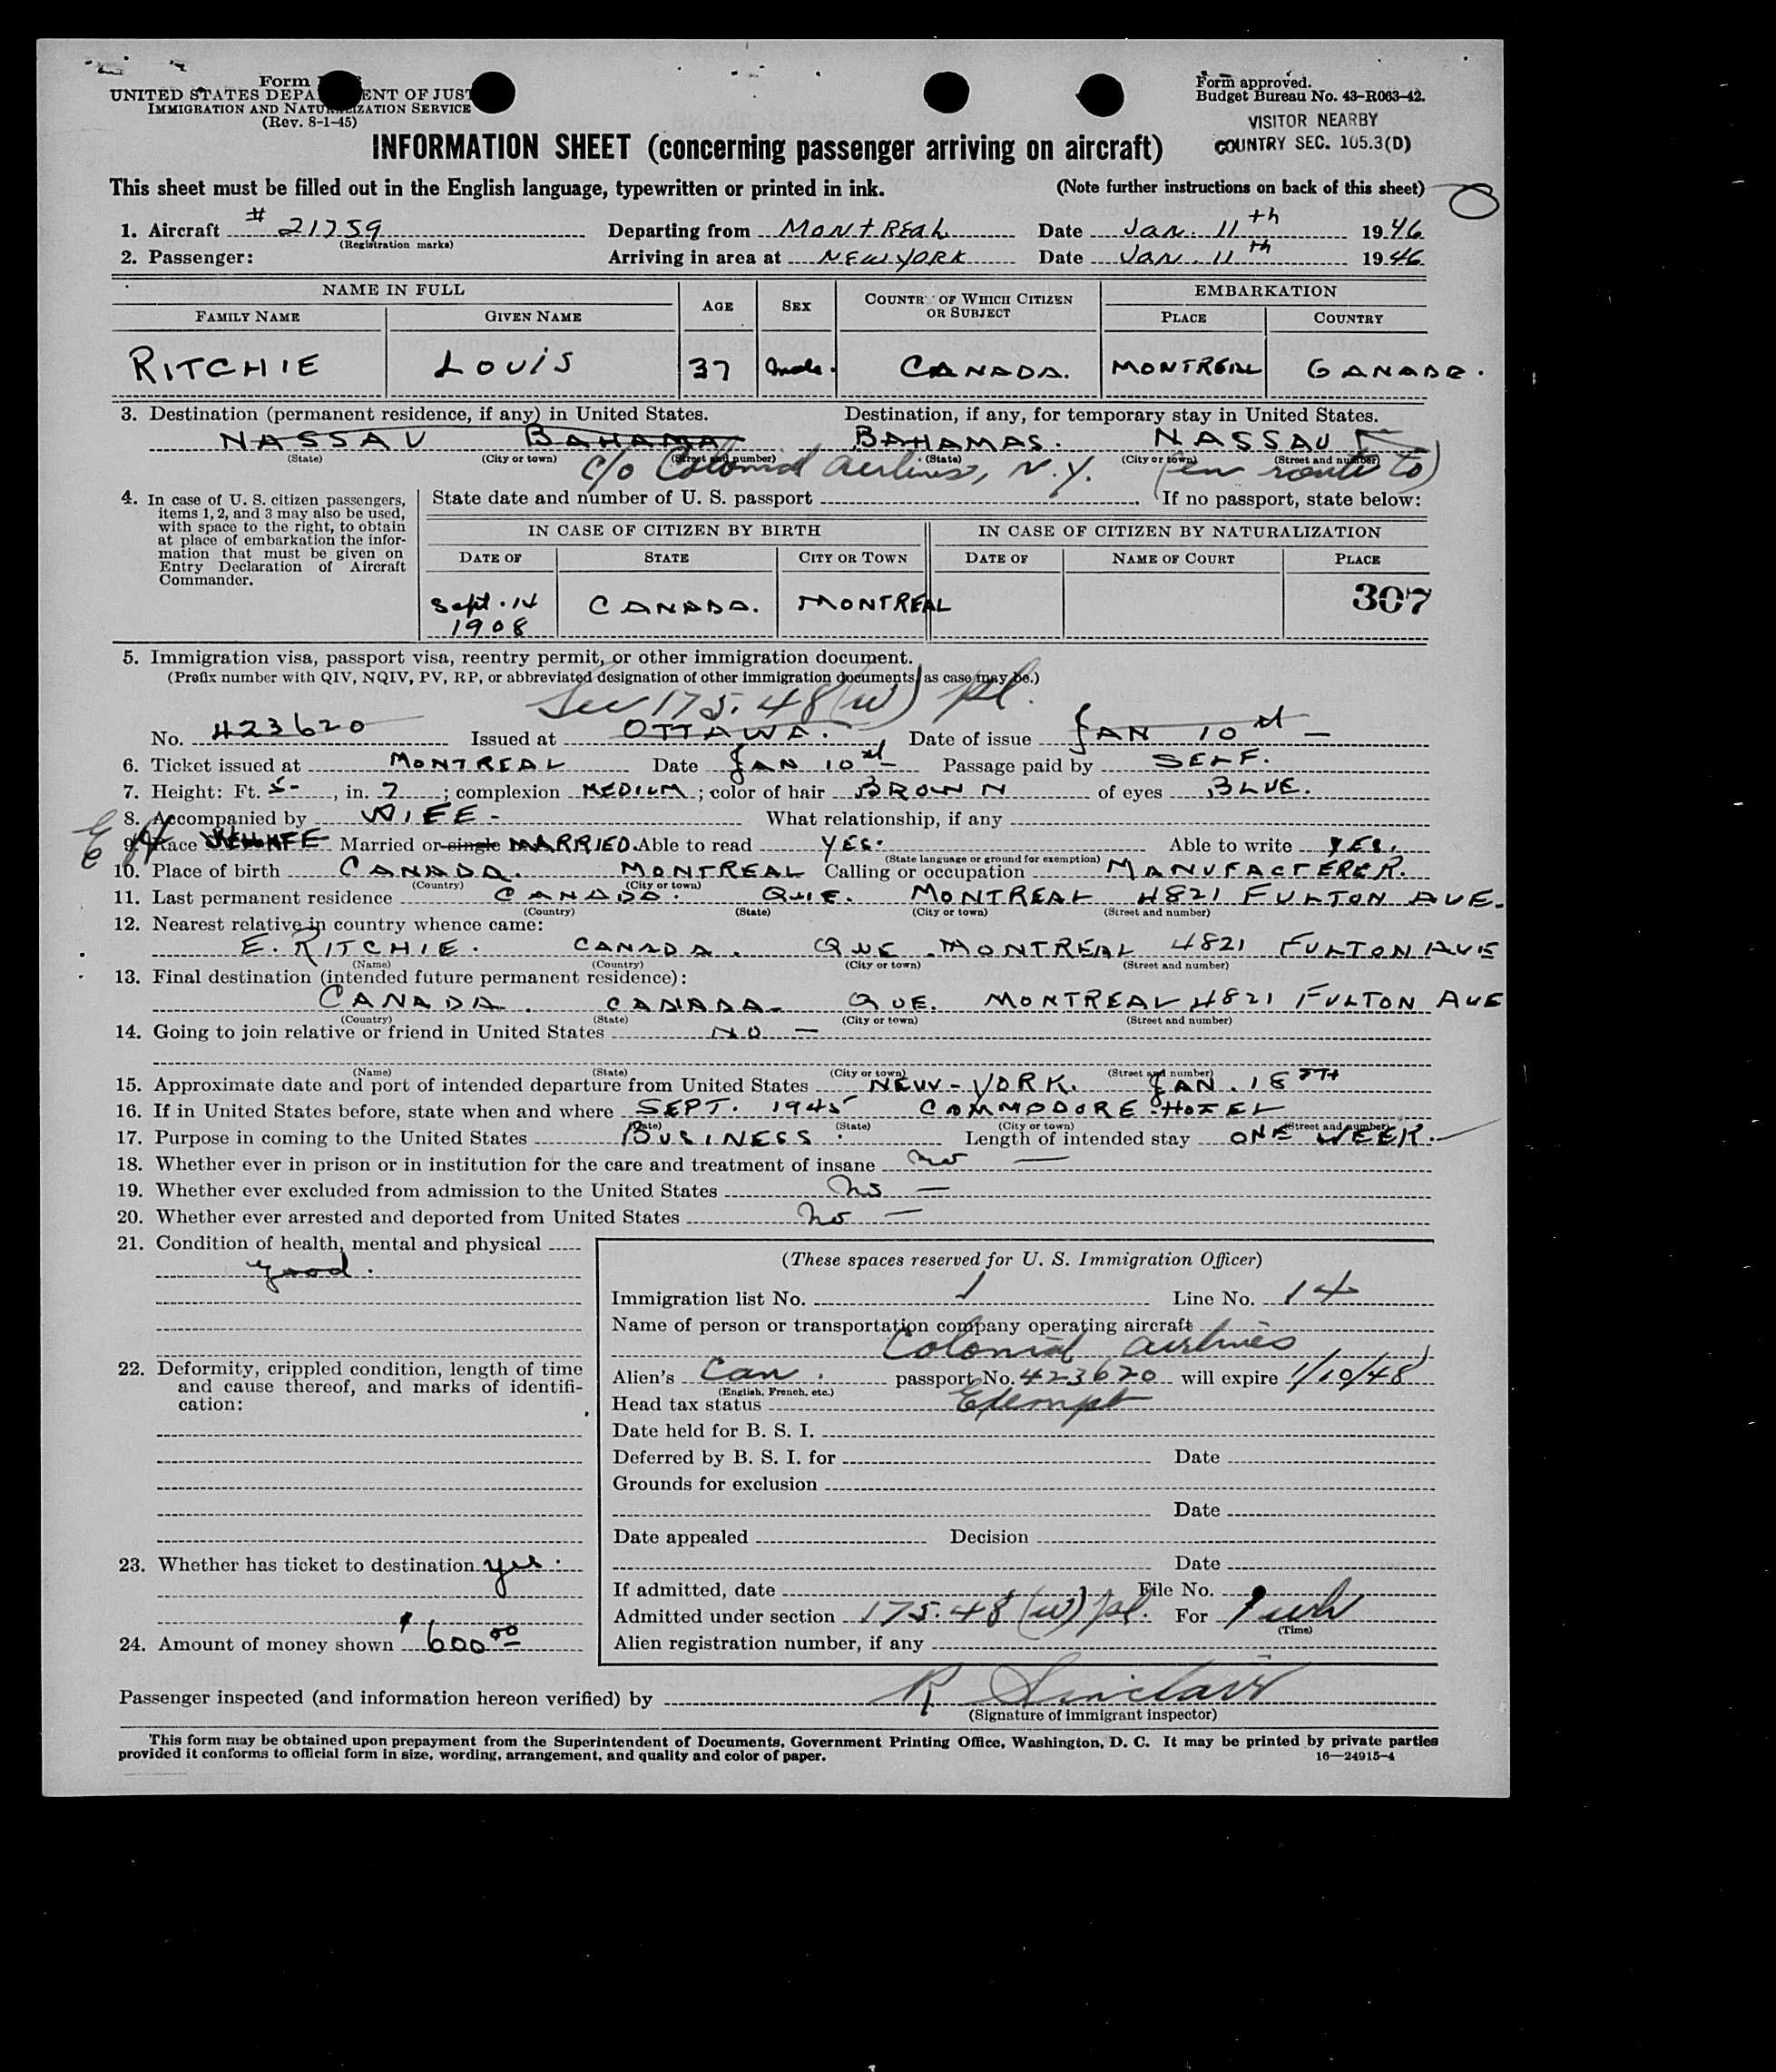 Form
UNITED STATES DEPA ENT OF JUST
IMMIGRATION AND NATURALIZATION SERVICE
(Rev. 8-1-45)
Form approved.
Budget Bureau No. 43-R063-42.
VISITOR NEARBY
COUNTRY SEC. 105.3(D)
INFORMATION SHEET (concerning passenger arriving on aircraft)
This sheet must be filled out in the English language, typewritten or printed in ink. (Note further instructions on back of this sheet)
1. Aircraft # 21759 Departing from MONTREAL Date JAN. 11th 1946
(Registration marks)
2. Passenger: Arriving in area at NEW YORK Date JAN. 11th 1946
NAME IN FULL AGE SEX COUNTRY OF WHICH CITIZEN OR SUBJECT EMBARKATION
FAMILY NAME GIVEN NAME PLACE COUNTRY
RITCHIE LOUIS 37 male. CANADA. MONTREAL CANADA.
3. Destination (permanent residence, if any) in United States. Destination, if any, for temporary stay in United States.
NASSAU BAHAMA BAHAMAS. NASSAU
(State) (City or town) (Street and number) (State) (City or town) (Street and number)
c/o Colonial Airlines, N.Y. (en route to)
4. In case of U. S. citizen passengers, items 1, 2, and 3 may also be used, with space to the right, to obtain at place of embarkation the information that must be given on Entry Declaration of Aircraft Commander.
State date and number of U. S. passport If no passport, state below:
IN CASE OF CITIZEN BY BIRTH IN CASE OF CITIZEN BY NATURALIZATION
DATE OF STATE CITY OR TOWN DATE OF NAME OF COURT PLACE
Sept. 14 1908 CANADA. MONTREAL 307
5. Immigration visa, passport visa, reentry permit, or other immigration document.
(Prefix number with QIV, NQIV, PV, RP, or abbreviated designation of other immigration documents, as case may be.)
Sec 175.48(w) pl.
No. 423620 Issued at OTTAWA. Date of issue JAN 10st
6. Ticket issued at MONTREAL Date JAN 10st Passage paid by SELF.
7. Height: Ft. 5-, in. 7; complexion MEDIUM; color of hair BROWN of eyes BLUE.
8. Accompanied by WIFE- What relationship, if any
9. Race Married or single MARRIED. Able to read YES. Able to write YES.
(State language or ground for exemption)
10. Place of birth CANADA. MONTREAL Calling or occupation MANUFACTERER.
(Country) (City or town)
11. Last permanent residence CANADA. QUE. MONTREAL 4821 FULTON AVE.
(Country) (State) (City or town) (Street and number)
12. Nearest relative in country whence came:
E. RITCHIE. CANADA. QUE. MONTREAL 4821 FULTON AVE
(Name) (Country) (City or town) (Street and number)
13. Final destination (intended future permanent residence):
CANADA. CANADA- QUE. MONTREAL 4821 FULTON AVE
(Country) (State) (City or town) (Street and number)
14. Going to join relative or friend in United States NO —
(Name) (State) (City or town) (Street and number)
15. Approximate date and port of intended departure from United States NEW-YORK. JAN. 18TH
16. If in United States before, state when and where SEPT. 1945 COMMODORE HOTEL
(Date) (State) (City or town) (Street and number)
17. Purpose in coming to the United States BUSINESS. Length of intended stay ONE WEEK.
18. Whether ever in prison or in institution for the care and treatment of insane no —
19. Whether ever excluded from admission to the United States no —
20. Whether ever arrested and deported from United States no —
21. Condition of health, mental and physical
good.
22. Deformity, crippled condition, length of time and cause thereof, and marks of identification:
23. Whether has ticket to destination yes.
24. Amount of money shown $600.00
(These spaces reserved for U. S. Immigration Officer)
Immigration list No. 1 Line No. 14
Name of person or transportation company operating aircraft
Colonial Airlines
Alien's Can. passport No. 423620 will expire 1/10/48
(English, French, etc.)
Head tax status Exempt
Date held for B. S. I.
Deferred by B. S. I. for Date
Grounds for exclusion
Date
Date appealed Decision
Date
If admitted, date File No.
Admitted under section 175.48(w) pl. For 1 wk
(Time)
Alien registration number, if any
Passenger inspected (and information hereon verified) by R Sinclair
(Signature of immigrant inspector)
This form may be obtained upon prepayment from the Superintendent of Documents, Government Printing Office, Washington, D. C. It may be printed by private parties
provided it conforms to official form in size, wording, arrangement, and quality and color of paper. 16—24915-4